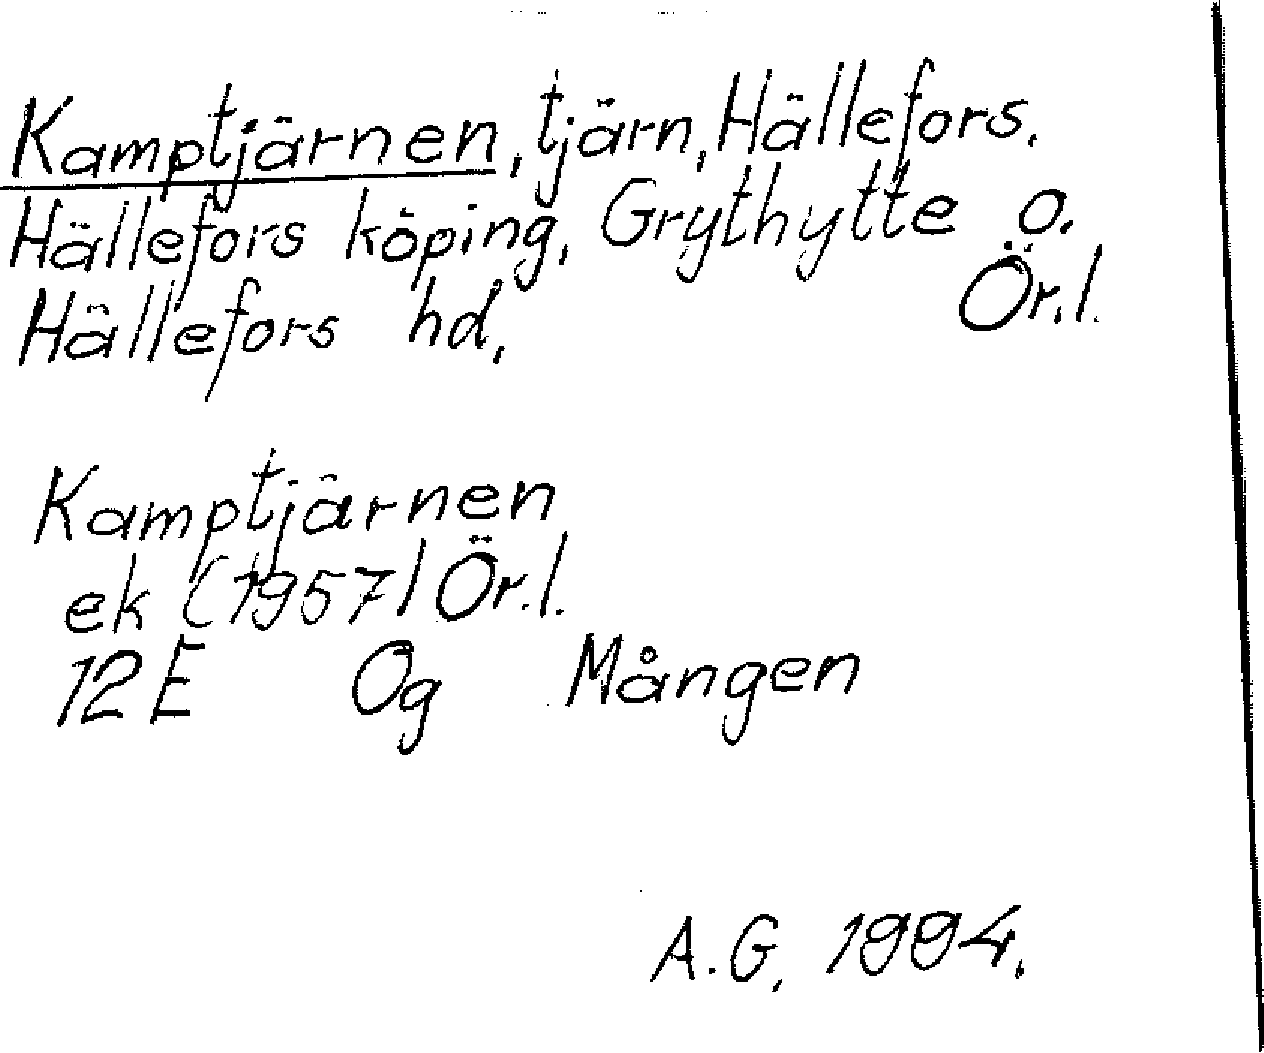 Kamptjärnen, tjärn, Hällefors.
Hällefors köping, Grythytte o.
Hällefors hd, Ör.l.
Kamptjärnen
ek (1957) Ör.l.
12E Og Mången
A.G. 1994.